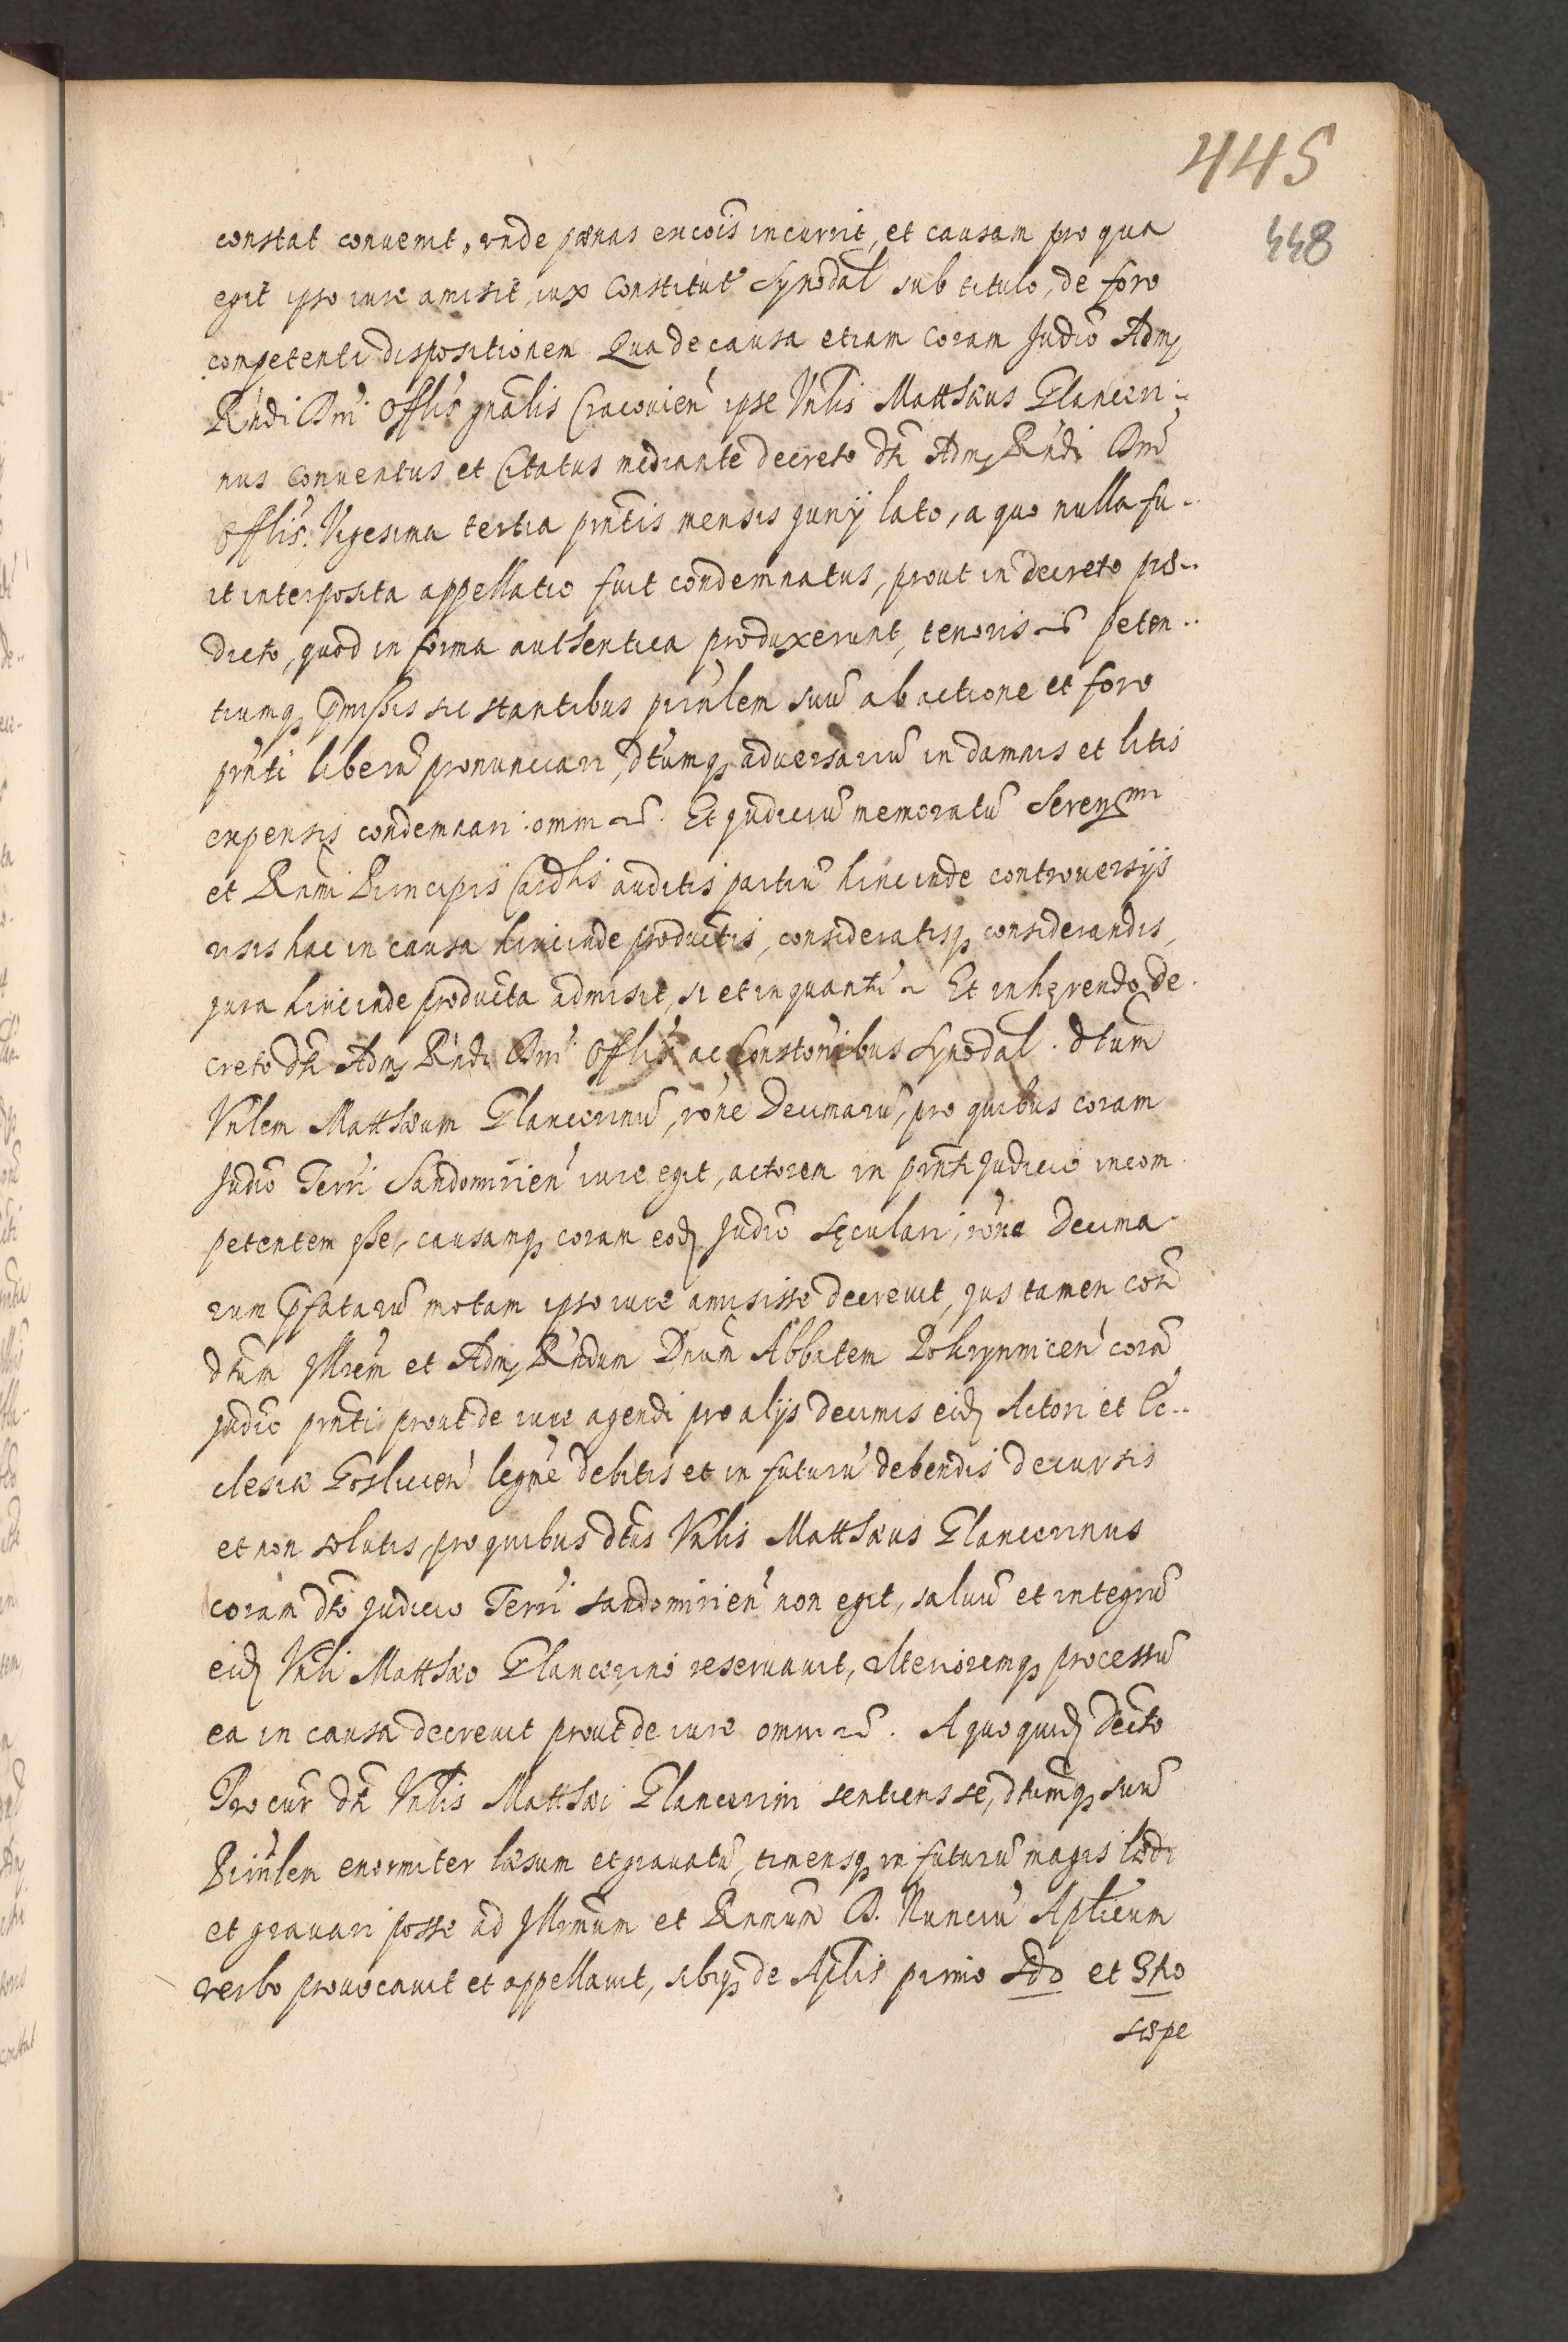 445
448
constat conuenit, vnde pœnas excôis incurrit, et causam pro qua
egit ipso iure amisit, iux Constitut Synodal sub titulo, de foro
competenti dispositionem Qua de causa etiam Coram Judiõ Adm
Rńdi Dńi Offlis gnãlis Cracouień ipse Vnlis Matthæus Glanceri-
nus Conuentus et Citatus mediante decreto dti Adm Rńdi Dńi
Offlis. Vigesima tertia pñtis mensis Junÿ lato, a quo nulla fu-
it interposita appellatio fuit condemnatus, prout in decreto præ-
dicto, quod in forma authentica produxerunt, tenoris peten-
tiumq pmissis sic stantibus prinlem suũ ab actione et foro
pñti liberũ pronunciari, dtũmq aduersariũ in damnis et litis
expensis condemnari omni. Et Judiciũ memoratũ Serenmi
et Rnmi Principis Cardlis auditis partiũ hincinde controuersÿs
visis hac in causa hincinde productis, consideratisq considerandis,
jura hincinde producta admisit, si et inquantũ Et inhęrendo de-
creto dti Adm Rńdi Dńi Offlis ac Constonibus Synodal. dtum
Vnlem Matthæum Glancerinũ, rõne Decimarũ, pro quibus coram
Judiõ Terrí Sandomirień iure egit, actorem in pñti Judicio incom-
petentem esse, causamq coram eod Judiõ sęculari, rõne Decima-
rum pfatarũ motam ipso iure amisisse decreuit, jus tamen con
dtum Jllrem et Adm Rńdum Dnum Abbatem Pokrzywnicen corã
Judiõ pñti prout de iure agendi pro alÿs decimis eid Actori et Ec-
clesiæ Goslicień legmè debitis et in futurũ debendis decursis
et non solutis, pro quibus dtus Vnlis Matthæus Glancerinus
coram dto Judicio Terrí Sandomirień non egit, saluũ et integrũ
eid Vnli Matthæo Glancerino reseruauit, vlterioremq processũ
ea in causa decreuit prout de iure omni. A quo quid decto
Procur dti Vnlis Matthæi Glancerini sentiens se, dtumq suũ
Prinlem enormiter læsum et grauatũ, timensq in futurũ magis lædi
et grauari posse ad Jllrmum et Rnmum D. Nunciũ Aplicum
verbo prouocauit et appellauit, sibiq de Aplis primo 2do et 3tio
sæpe